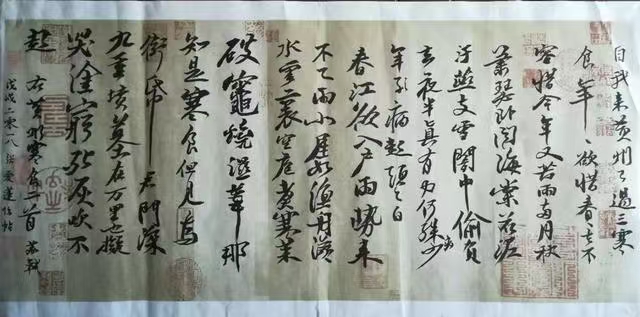 自我来黄州已過三寒
食年〻欲惜春春去不
容惜今年又苦雨兩月秋
蕭瑟卧聞海棠花泥
汙燕支雪闇中偷負
去夜半真有力何殊少
年子病起頭已白
春江欲入户雨勢来
不已雨小屋如漁舟濛〻
水雲裏空庖煮寒菜
破竈燒濕葦那
知是寒食但見烏
銜帋君門深
九重墳墓在万里也擬
哭塗窮死灰吹不
起 右黄州寒食二首 蘇軾
戊戌二零一八 愛蓮臨帖